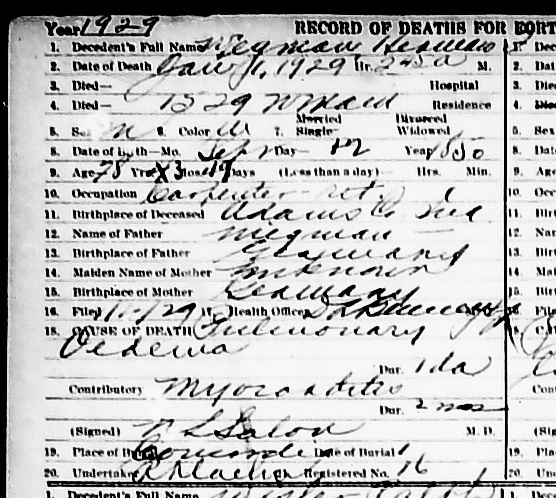 Year 1929 RECORD OF DEATHS FOR FORT
1. Decedent's Full Name Wegman Herman
2. Date of Death Jan 1, 1929 Hr. 245 a M.
3. Died— Hospital
4. Died— 1329 Residence
Married Divorced
5. Sex M 6. Color W 7. Single Widowed
8. Date of Birth—Mo. Sep Day— 12 Year 1850
9. Age 78 Yrs. 3 Mos. 19 Days (Less than a day) Hrs. Min.
10. Occupation Carpenter - ret
11. Birthplace of Deceased Adams Co Ind
12. Name of Father Wegman
13. Birthplace of Father Germany
14. Maiden Name of Mother unknown
15. Birthplace of Mother Germany
16. Filed Health Officer
18. CAUSE OF DEATH Pulmonary
Oedema
Dur. 1 da
Contributory Myocarditis
Dur. 2 mos
(Signed) M. D.
19. Place of Burial Concordia Date of Burial
20. Undertaker Registered No. 16
1. Decedent's Full Name